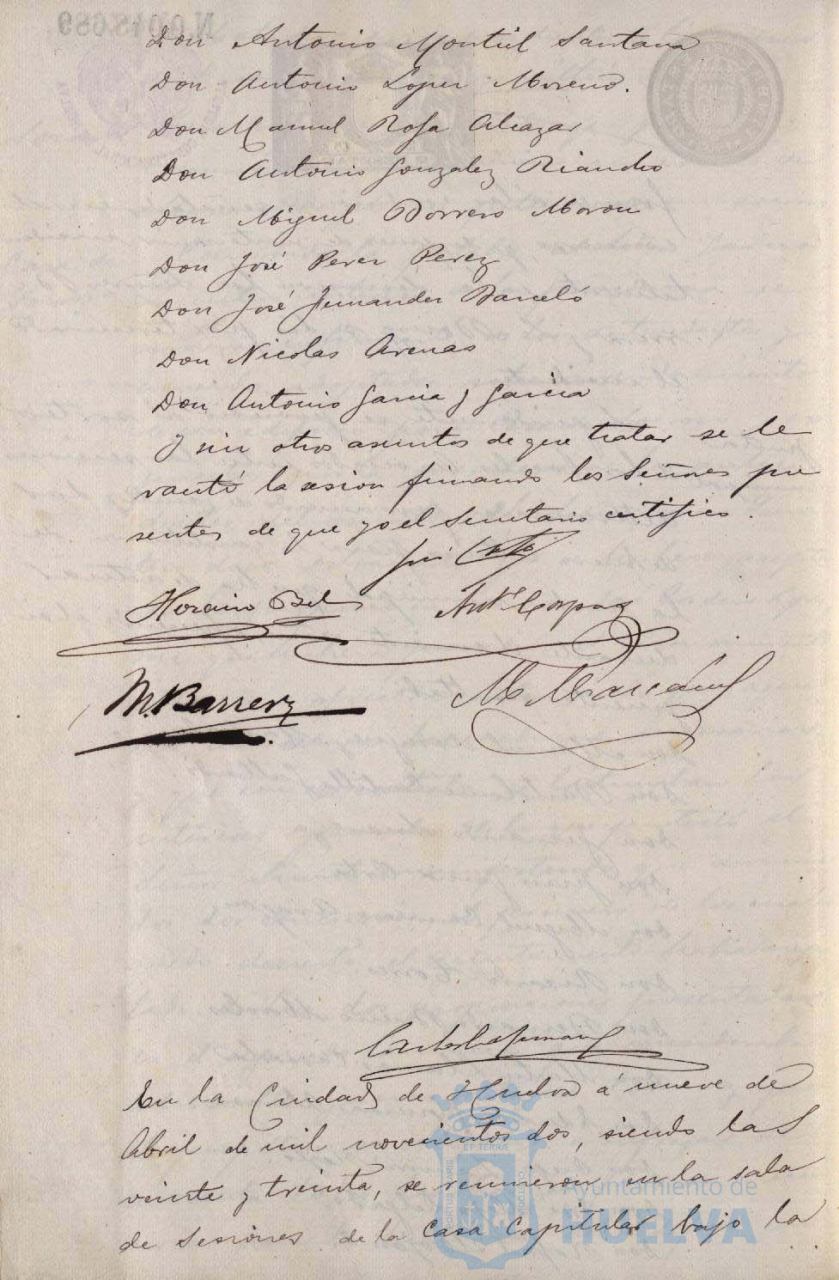 Don Antonio Montiel Santana
Don Antonio Lopez Moreno.
Don Manuel Rosa Alcazar
Don Antonio Gonzalez
Don Miguel Borrero Moron
Don José Perez Perez
Don José Fernandez Barceló
Don Nicolas Arenas
Don Antonio Garcia y Garcia
Y sin otros asuntos de que tratar se le
vantó la sesion firmando los Señores pre
sentes de que yo el Secretario certifico.
Horacio Bel
M. Barrera
En la Ciudad de Huelva á nueve de
Abril de mil novecientos dos, siendo las
veinte y treinta, se reunieron en la sala
de Sesiones de la Casa Capitular bajo la
Ayuntamiento de
HUELVA